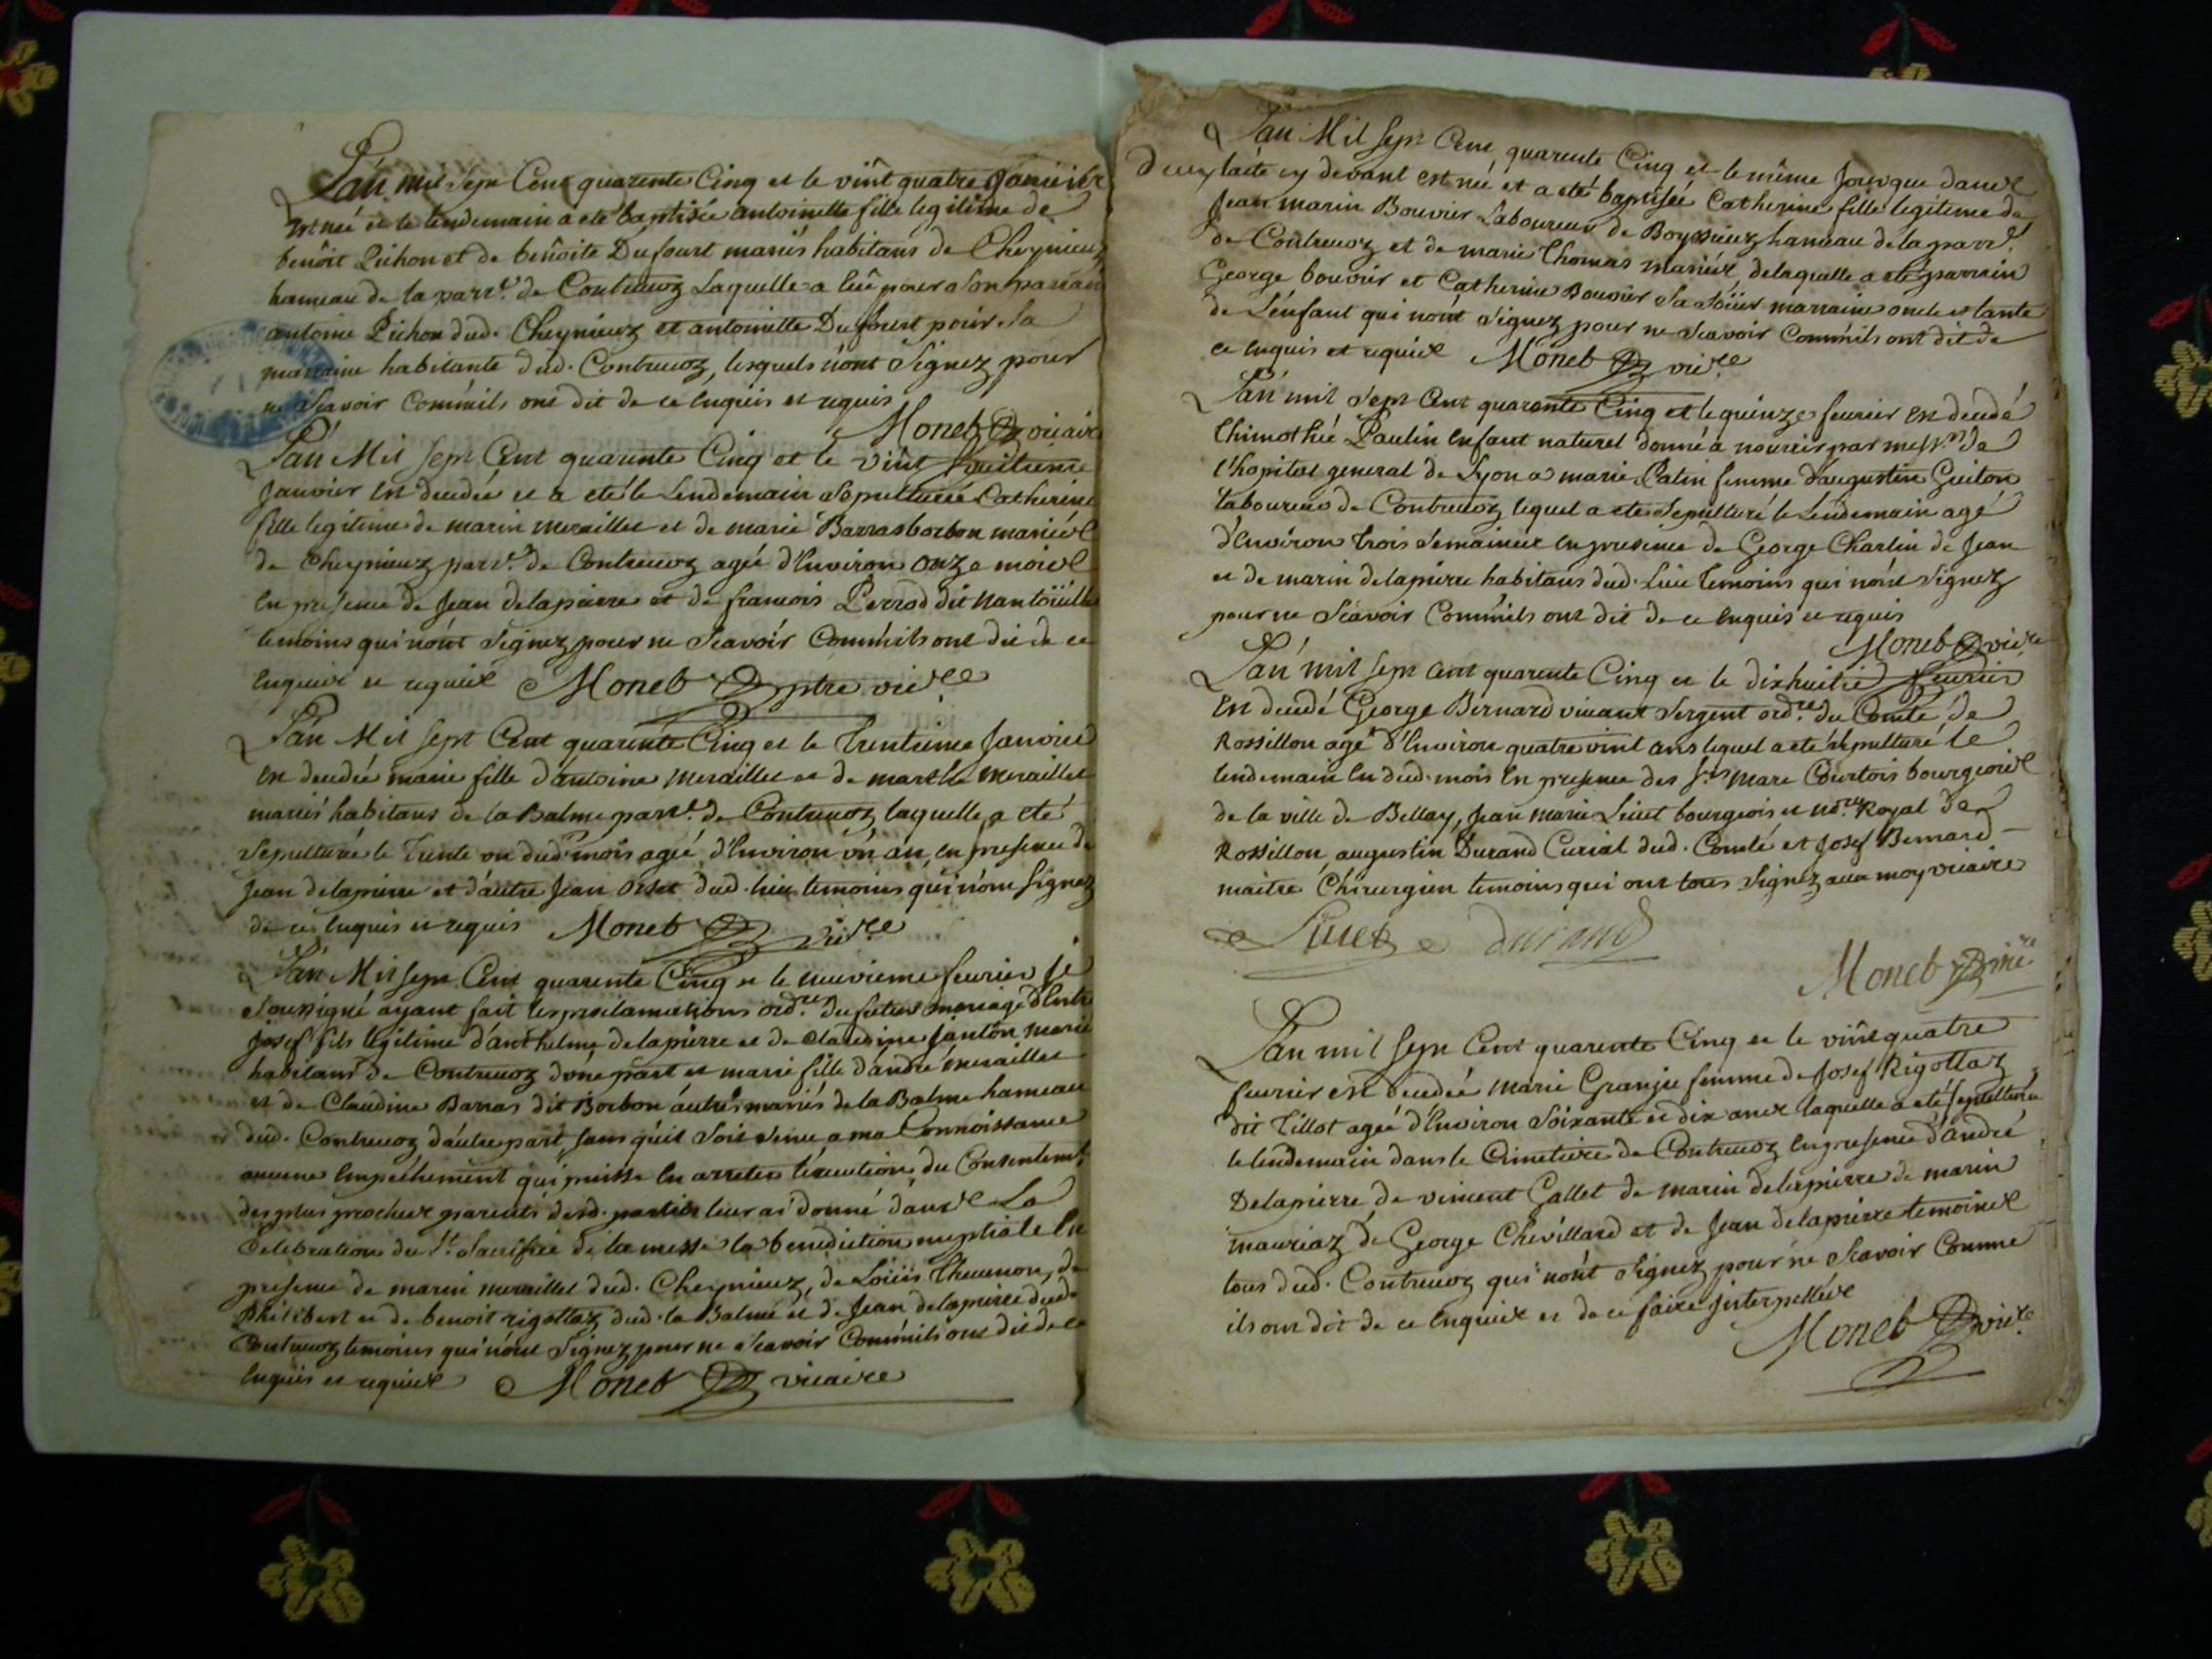 L'an mil sept Cent quarente Cinq et le vint quatre Janvier
est neé et le lendemain a eté baptisée antoinette fille legitime de
benôit Pichon et de benôite Dufourt mariés habitans de Cheynieuz
hameau de la parr.e de Contrevoz Laquelle a eûe pour son parrain
antoine Pichon dud. Cheynieuz et antoinette Dufourt pour sa
marraine habitante dud. Contrevoz, lesquels n'ont signez pour
ne scavoir comm'ils ont dit de ce enquis et requis
Moneb vicaire
L'an Mil sept Cent quarente Cinq et le vint huitieme
Janvier est decedée et a eté le Lendemain sepulturée Catherine
fille legitime de marin meraillet et de marie Barrasborbon mariés
de Cheynieuz parr.e de Contrevoz ageé d'Environ onze mois
En presence de Jean delapierre et de francois Perrod dit Nantoüille
temoins qui n'ont signez pour ne scavoir Comm'ils ont dit de ce
Enquis et requis Moneb ptre vic.re
L'an Mil sept Cent quarente Cinq et le Trentieme Janvier
est decedée marie fille d'antoine meraillet et de marthe meraillet
mariés habitans de la Balme parr.e de Contrevoz laquelle a eté
sepulturée le Trente un dud. mois ageé d'Environ un an, en presence de
Jean delapierre et d'autre Jean dud. lieu temoins qui n'ont signez
de ce enquis et requis Moneb vic.re
L'an Mil sept Cent quarente Cinq et le neuvieme fevrier je
soussigné ayant fait les proclamations ord.res du futur mariage d'Entre
Josef fils legitime d'anthelme delapierre et de claudine Janton mariés
habitans de Contrevoz d'une part et marie fille d'andré meraillet
et de Claudine Barras dit Borbon autres mariés de la Balme hameau
dud. Contrevoz d'autre part, sans qu'il soit venu a ma Connoissance
aucune Empéchement qui puisse En arreter l'exécution, du Consentem.t
des plus proches parents desd. parties leur ai donné dans La
Celebration du S.t Sacrifice de la messe la benediction nuptiale En
presence de marin meraillet dud. Cheynieuz, de Loüis Thevenon, de
Philibert et de benoit rigottaz dud. la Balme et de Jean delapierre dud.
Contrevoz temoins qui n'ont signez pour ne scavoir Comm'ils ont dit de ce
Enquis et requis Moneb vicaire
L'an Mil sept Cent quarente Cinq et le même Jour que dans
l'acte cy devant est neé et a eté baptisée Catherine fille legitime de
Jean marin Bouvier Laboureur de Boyssieuz hameau de la parr.e
de Contrevoz et de marie Thomas mariés, de laquelle a eté parrain
George bouvier et Catherine Bouvier sa soeur marraine oncle et tante
de L'enfant qui n'ont signez pour ne scavoir Comm'ils ont dit de
ce enquis et requis Moneb vic.re
L'an mil sept Cent quarente Cinq et le quinze fevrier est decedé
Thimothée Paulin Enfant naturel donné a nourrir par mess.rs de
l'hopital general de Lyon a marie Patin femme d'augustin Guiton
laboureur de Contrevoz lequel a eté sepulturé le Lendemain agé
d'Environ trois semaines En presence de George Charlin de Jean
et de marin delapierre habitans dud. Lieu temoins qui n'ont signez
pour ne scavoir Comm'ils ont dit de ce enquis et requis
Moneb vic.re
L'an mil sept Cent quarente Cinq et le dixhuitie fevrier
est decedé George Bernard vivant sergent ord.re du Comté de
Rossillon agé d'Environ quatrevint ans lequel a eté sepulturé le
lendemain dud. mois En presence des s.rs marc Courtois bourgeois
de la ville de Bellay, Jean marie Livet bourgeois et no.re Royal de
Rossillon augustin Durand Curial dud. Comté et Josef Bernard
maitre Chirurgien temoins qui ont tous signez avec moy vicaire
Livet Durand
Moneb vic.re
L'an mil sept Cent quarente Cinq et le vint quatre
fevrier est decedée marie Granjee femme de Josef Rigottaz
dit Tillot ageé d'Environ soixante et dix ans laquelle a eté sepulturée
le lendemain dans le Cimetiere de Contrevoz En presence d'andré
Delapierre de vincent Gallet de marin delapierre de marin
mauriaz de George Chevillard et de Jean delapierre temoins
tous dud. Contrevoz qui n'ont signez pour ne scavoir Comme
ils ont dit de ce enquis et de ce faire Interpellés
Moneb vic.re